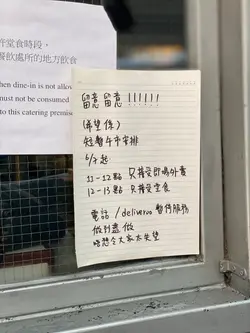 許堂食時段，
餐飲處所的地方飲食
hen dine-in is not allow
must not be consumed
to this catering premise
留意 留意 !!!!!!
(希望係)
短暫午市安排
6/7 起
11-12點 只接受即場外賣
12-13點 只接受堂食
電話 / deliveroo 暫停服務
做到盡做
唔想令大家太失望